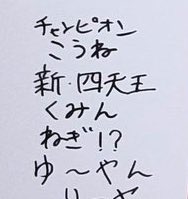 チャンピオン
こうね
新・四天王
くみん
ねぎ!?
ゆ〜やん